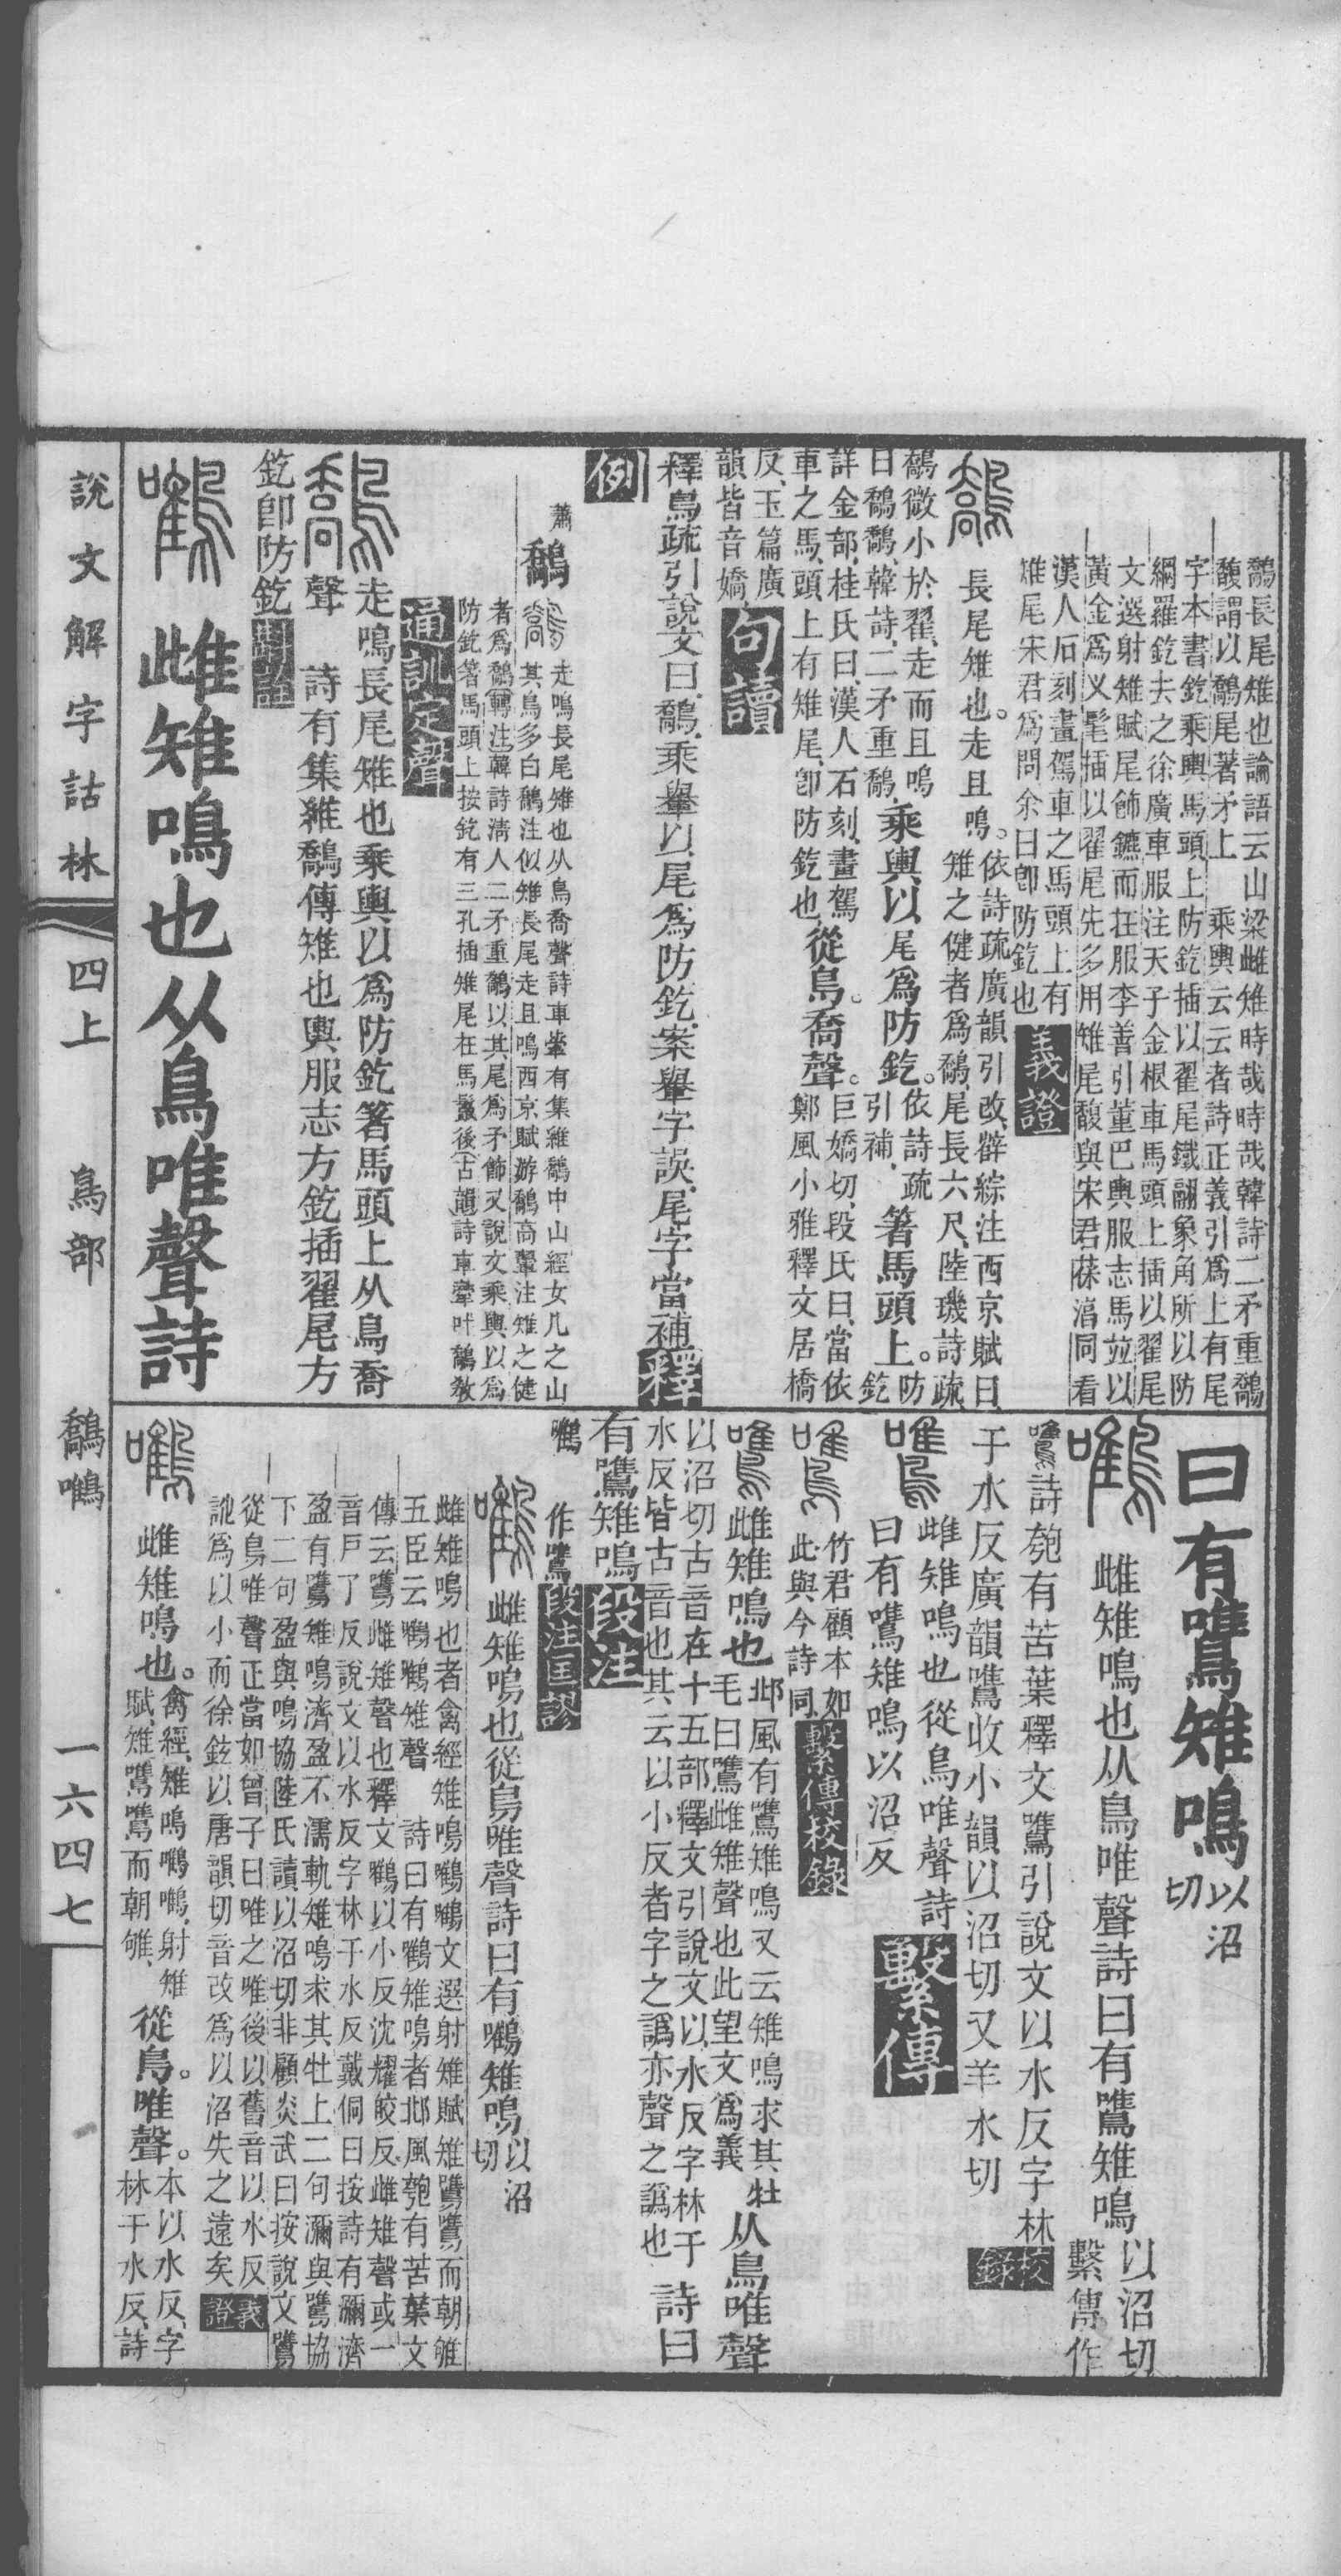 鷮長尾雉也論語云山梁雌雉時哉時哉韓詩二矛重鷮
馥謂以鷮尾著矛上　乘輿云云者詩正義引爲上有尾
字本書鈗乘輿馬頭上防鈗插以翟尾鐵翮象角所以防
網羅鈗去之徐廣車服注天子金根車馬頭上插以翟尾
文選射雉賦尾飾鑣而在服李善引董巴輿服志馬竝以
黃金爲义髦插以翟尾先多用雉尾馥與宋君葆湻同看
漢人石刻畫駕車之馬頭上有
雉尾宋君爲問余曰卽防鈗也義證
長尾雉也。走且鳴。依詩疏廣韻引改薛綜注西京賦曰
雉之健者爲鷮尾長六尺陸璣詩疏
鷮微小於翟走而且鳴
曰鷮鷮韓詩二矛重鷮乘輿以尾爲防鈗。依詩疏
引補箸馬頭上。防鈗
詳金部桂氏曰漢人石刻畫駕
車之馬頭上有雉尾卽防鈗也從鳥。喬聲。巨嬌切段氏曰當依
鄭風小雅釋文居橋
反玉篇廣
韻皆音嬌句讀
釋鳥疏引說文曰鷮乘轝以尾爲防鈗案轝字誤尾字當補釋
例
蕭
鷮
走鳴長尾雉也从鳥喬聲詩車舝有集維鷮中山經女几之山
其鳥多白鷮注似雉長尾走且鳴西京賦游鷮高翬注雉之健
者爲鷮轉注韓詩淸人二矛重鷮以其尾爲矛飾又說文乘輿以爲
防鈗箸馬頭上按鈗有三孔插雉尾在馬鬉後古韻詩車舝叶鷮敎
通訓定聲
走鳴長尾雉也乘輿以爲防鈗箸馬頭上从鳥喬
聲　詩有集維鷮傳雉也輿服志方鈗插翟尾方
鈗卽防鈗斠詮
雌雉鳴也从鳥唯聲詩
曰有鷕雉鳴以沼
切
雌雉鳴也从鳥唯聲詩曰有鷕雉鳴以沼切
繫傳作
鷕詩匏有苦葉釋文鷕引說文以水反字林
于水反廣韻鷕收小韻以沼切又羊水切校
錄
雌雉鳴也從鳥唯聲詩
曰有鷕雉鳴以沼反繫傳
竹君顧本如
此與今詩同繫傳校錄
雌雉鳴也邶風有鷕雉鳴又云雉鳴求其牡
毛曰鷕雌雉聲也此望文爲義从鳥唯聲
以沼切古音在十五部釋文引說文以水反字林于
水反皆古音也其云以小反者字之譌亦聲之譌也詩曰
有鷕雉鳴段注
作鷕段注匡謬
雌雉鳴也從鳥唯聲詩曰有鷕雉鳴以沼
切
雌雉鳴也者禽經雉鳴鷕鷕文選射雉賦雉鷕鷕而朝雊
五臣云鷕鷕雉聲　詩曰有鷕雉鳴者邶風匏有苦葉文
傳云鷕雌雉聲也釋文鷕以小反沈耀皎反雌雉聲或一
音戶了反說文以水反字林于水反戴侗曰按詩有瀰濟
盈有鷕雉鳴濟盈不濡軌雉鳴求其牡上二句瀰與鷕協
下二句盈與鳴協陸氏讀以沼切非顧炎武曰按說文鷕
從鳥唯聲正當如曾子曰唯之唯後以舊音以水反
訛爲以小而徐鉉以唐韻切音改爲以沼失之遠矣義
證
雌雉鳴也。禽經雉鳴鷕鷕射雉
賦雉鷕鷕而朝雊從鳥。唯聲。本以水反字
林于水反詩
說文解字詁林　四上　鳥部　鷮鷕　一六四七